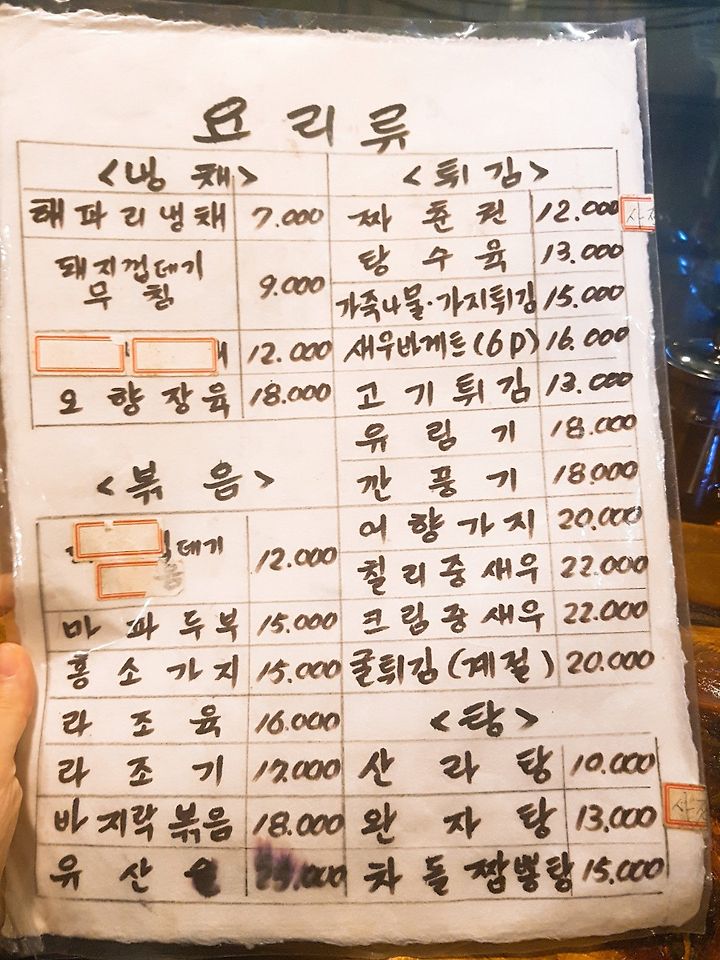 요리류
<냉채>
해파리냉채 7.000
돼지껍데기
무침 9.000
12.000
오향장육 18.000
<볶음>
데기 12.000
마파두부 15.000
홍소가지 15.000
라조육 16.000
라조기 17.000
바지락볶음 18.000
유산
<튀김>
짜춘권 12.000
탕수육 13.000
가죽나물·가지튀김 15.000
새우바게트(6P) 16.000
고기튀김 13.000
유림기 18.000
깐풍기 18.000
어향가지 20.000
칠리중새우 22.000
크림중새우 22.000
굴튀김(계절) 20.000
<탕>
산라탕 10.000
완자탕 13.000
차돌짬뽕탕 15.000